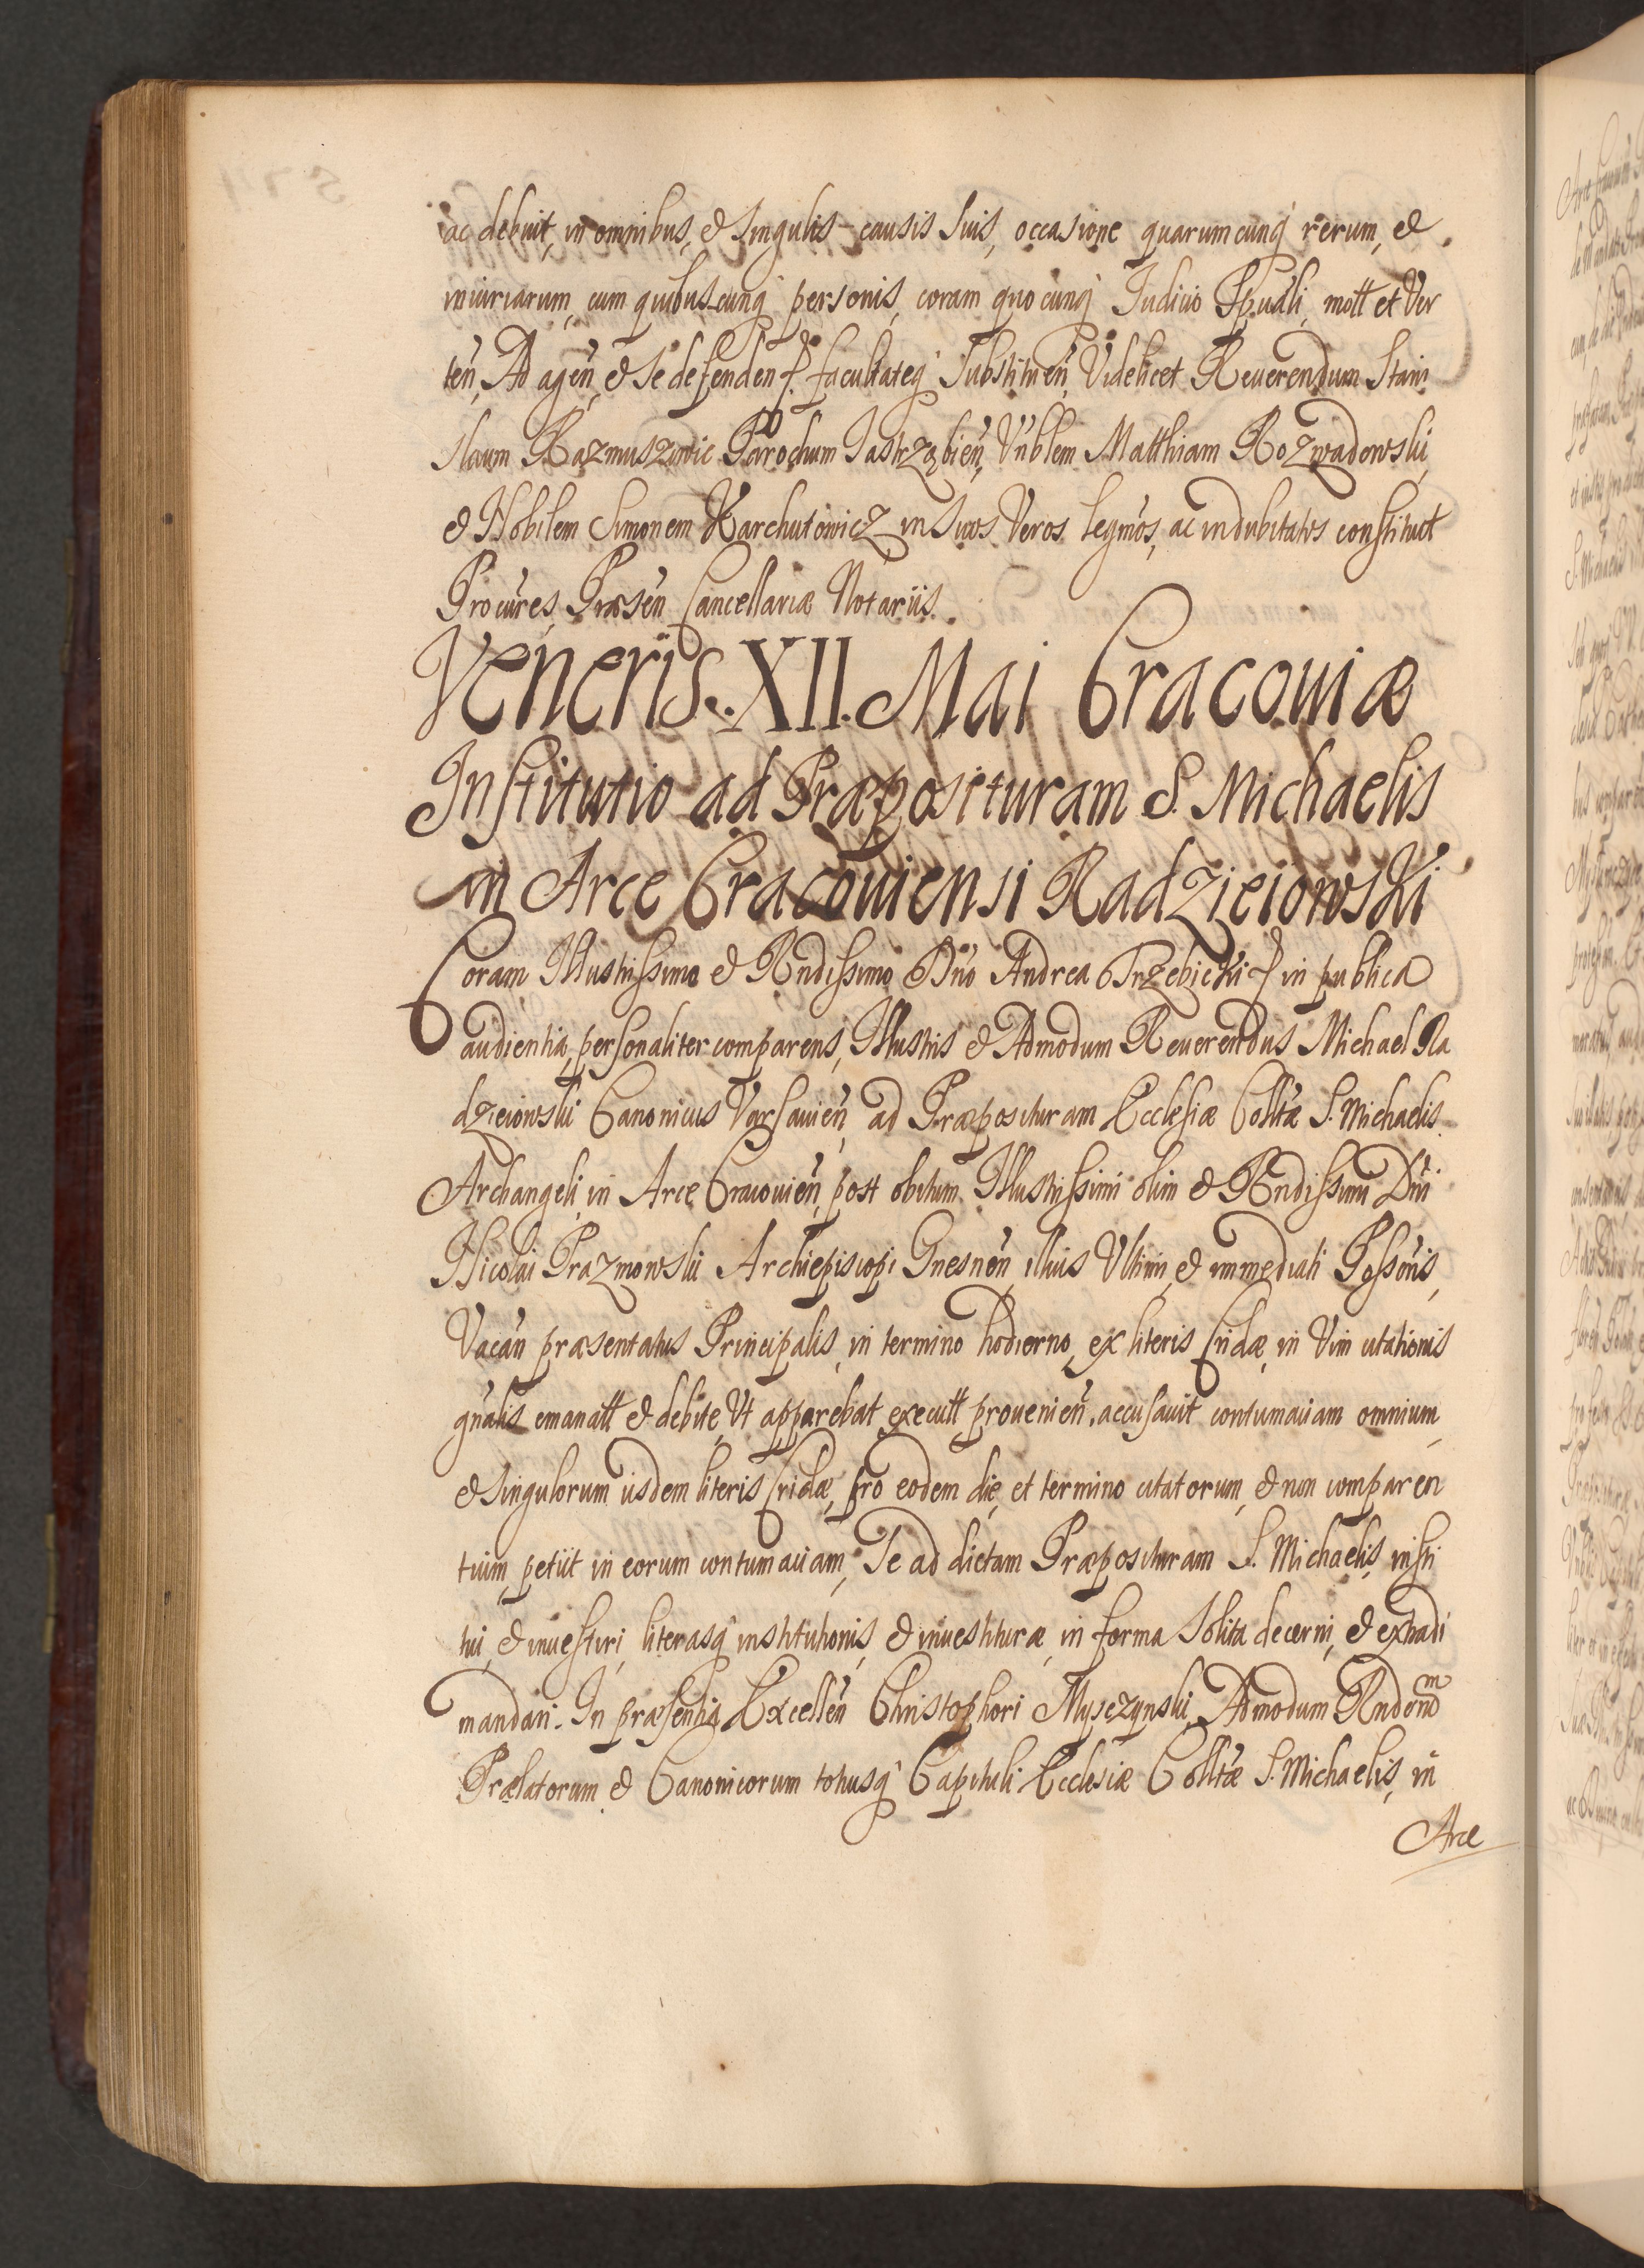 ac debuit, in omnibus, & singulis causis suis, occasione quarumcunq rerum, &
iniuriarum, cum quibuscunq personis, coram quocunq Iudicio Spuali, mott et Ver
ten, Ad agen, & se defenden f. facultateq Substituen, Videlicet Reuerendum Stani
slaum Razmuszowic Parochum Iastrząbien, Vnblem Matthiam Rozwadowski,
& Nobilem Simonem Karchutowicz in suos Veros legmos, ac indubitatos constituit
Procures, Præsen Cancellariæ Notariis.
Veneris. XII. Mai Cracouiæ
Institutio ad Præposituram S. Michaelis
in Arce Cracouiensi Radzieiowski
Coram Illustrissimo & Rndissimo Dno Andrea Trzebicki f in publica
audientia, personaliter comparens, Illustris & Admodum Reuerendus Michael Ra
dzieiowski Canonicus Varsauien, ad Præposituram Ecclesiæ Colltæ S. Michaelis
Archangeli, in Arce Cracouien, post obitum Illustrissimi olim & Rndissimi Dni
Nicolai Prazmowski Archiepiscopi Gnesnen, illius Vltimi, & immediati Possoris,
Vacan præsentatus Principalis, in termino hodierno, ex literis Cridæ, in Vim citationis
gnalis emanatt & debite, Vt apparebat executt prouenien, accusauit contumaciam omnium,
& singulorum iisdem literis Cridæ, pro eodem die, et termino citatorum, & non comparen
tium, petiit in eorum contumaciam, Se ad dictam Præposituram S. Michaelis, insti
tui, & inuestiri, literasq institutionis, & inuestituræ, in forma solita decerni, & extradi
mandari. In præsentia Excellen Christophori Mysczynski, Admodum Rndorum
Prælatorum & Canonicorum totiusq Capituli Ecclesiæ Colltæ S. Michaelis, in
Arce